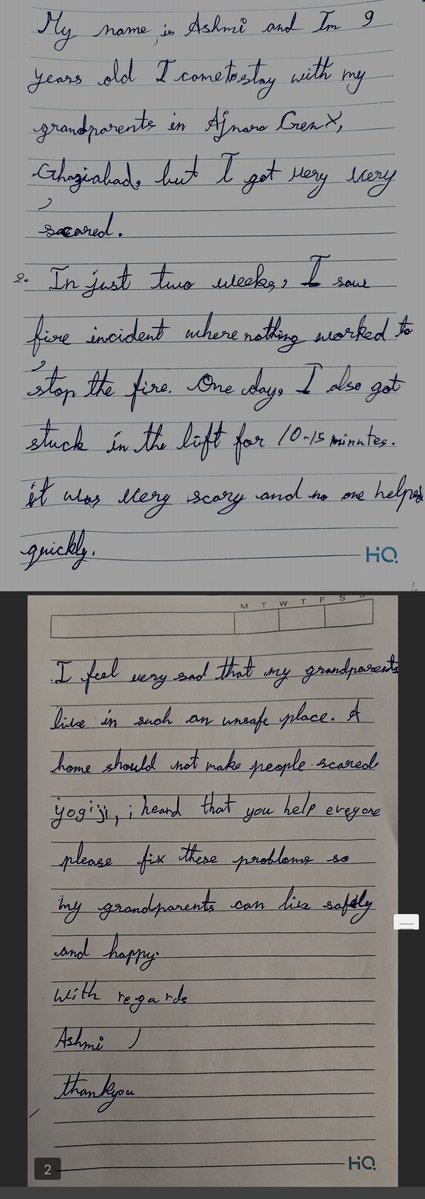 My name, is Ashmi and Im 9
years old I come to stay with my
grandparents in Ajnara Gen X,
Ghaziabad, but I got very very
scared.
2. In just two weeks, I saw
fire incident where nothing worked to
stop the fire. One day, I also got
stuck in the lift for 10-15 minutes.
it was very scary and no one helped
quickly.
HQ
M T W T F S S
I feel very sad that my grandparents
live in such an unsafe place. A
home should not make people scared
yogiji, i heard that you help evegone
please fix these problems so
my grandparents can live safely
and happy.
with regards
Ashmi )
thankyou
2
HQ